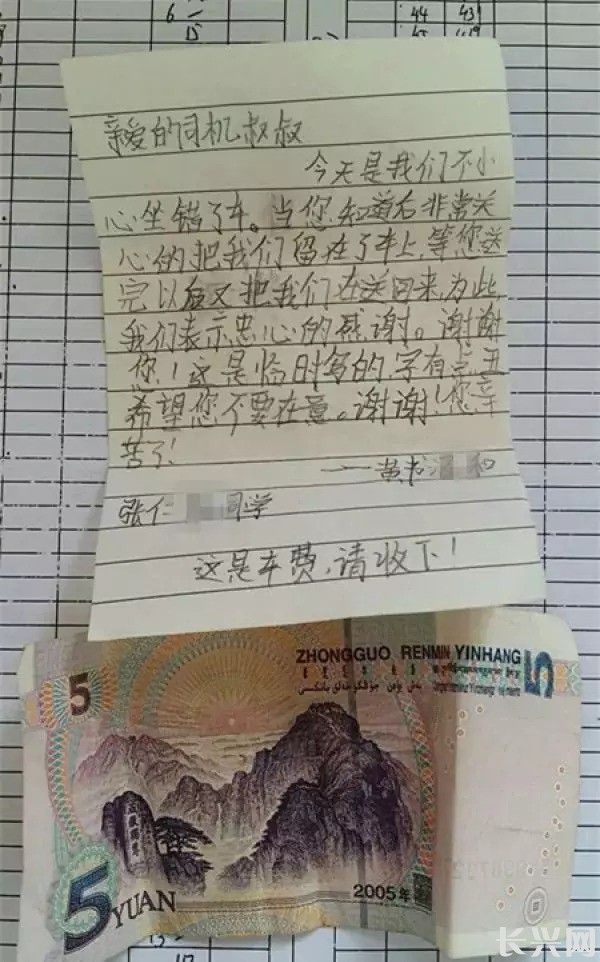 6
15
44
43
45
亲爱的司机叔叔
今天是我们不小
心坐错了车。当您知道后非常关
心的把我们留在了车上,等您送
完以后又把我们在送回来,为此,
我们表示忠心的感谢。谢谢
您!这是临时写的,字有点丑
希望您不要在意。谢谢!您辛
苦了!
——黄书 和
张仁 同学
这是车费,请收下!
ZHONGGUO RENMIN YINHANG
5
5
5 YUAN
2005年
长兴网